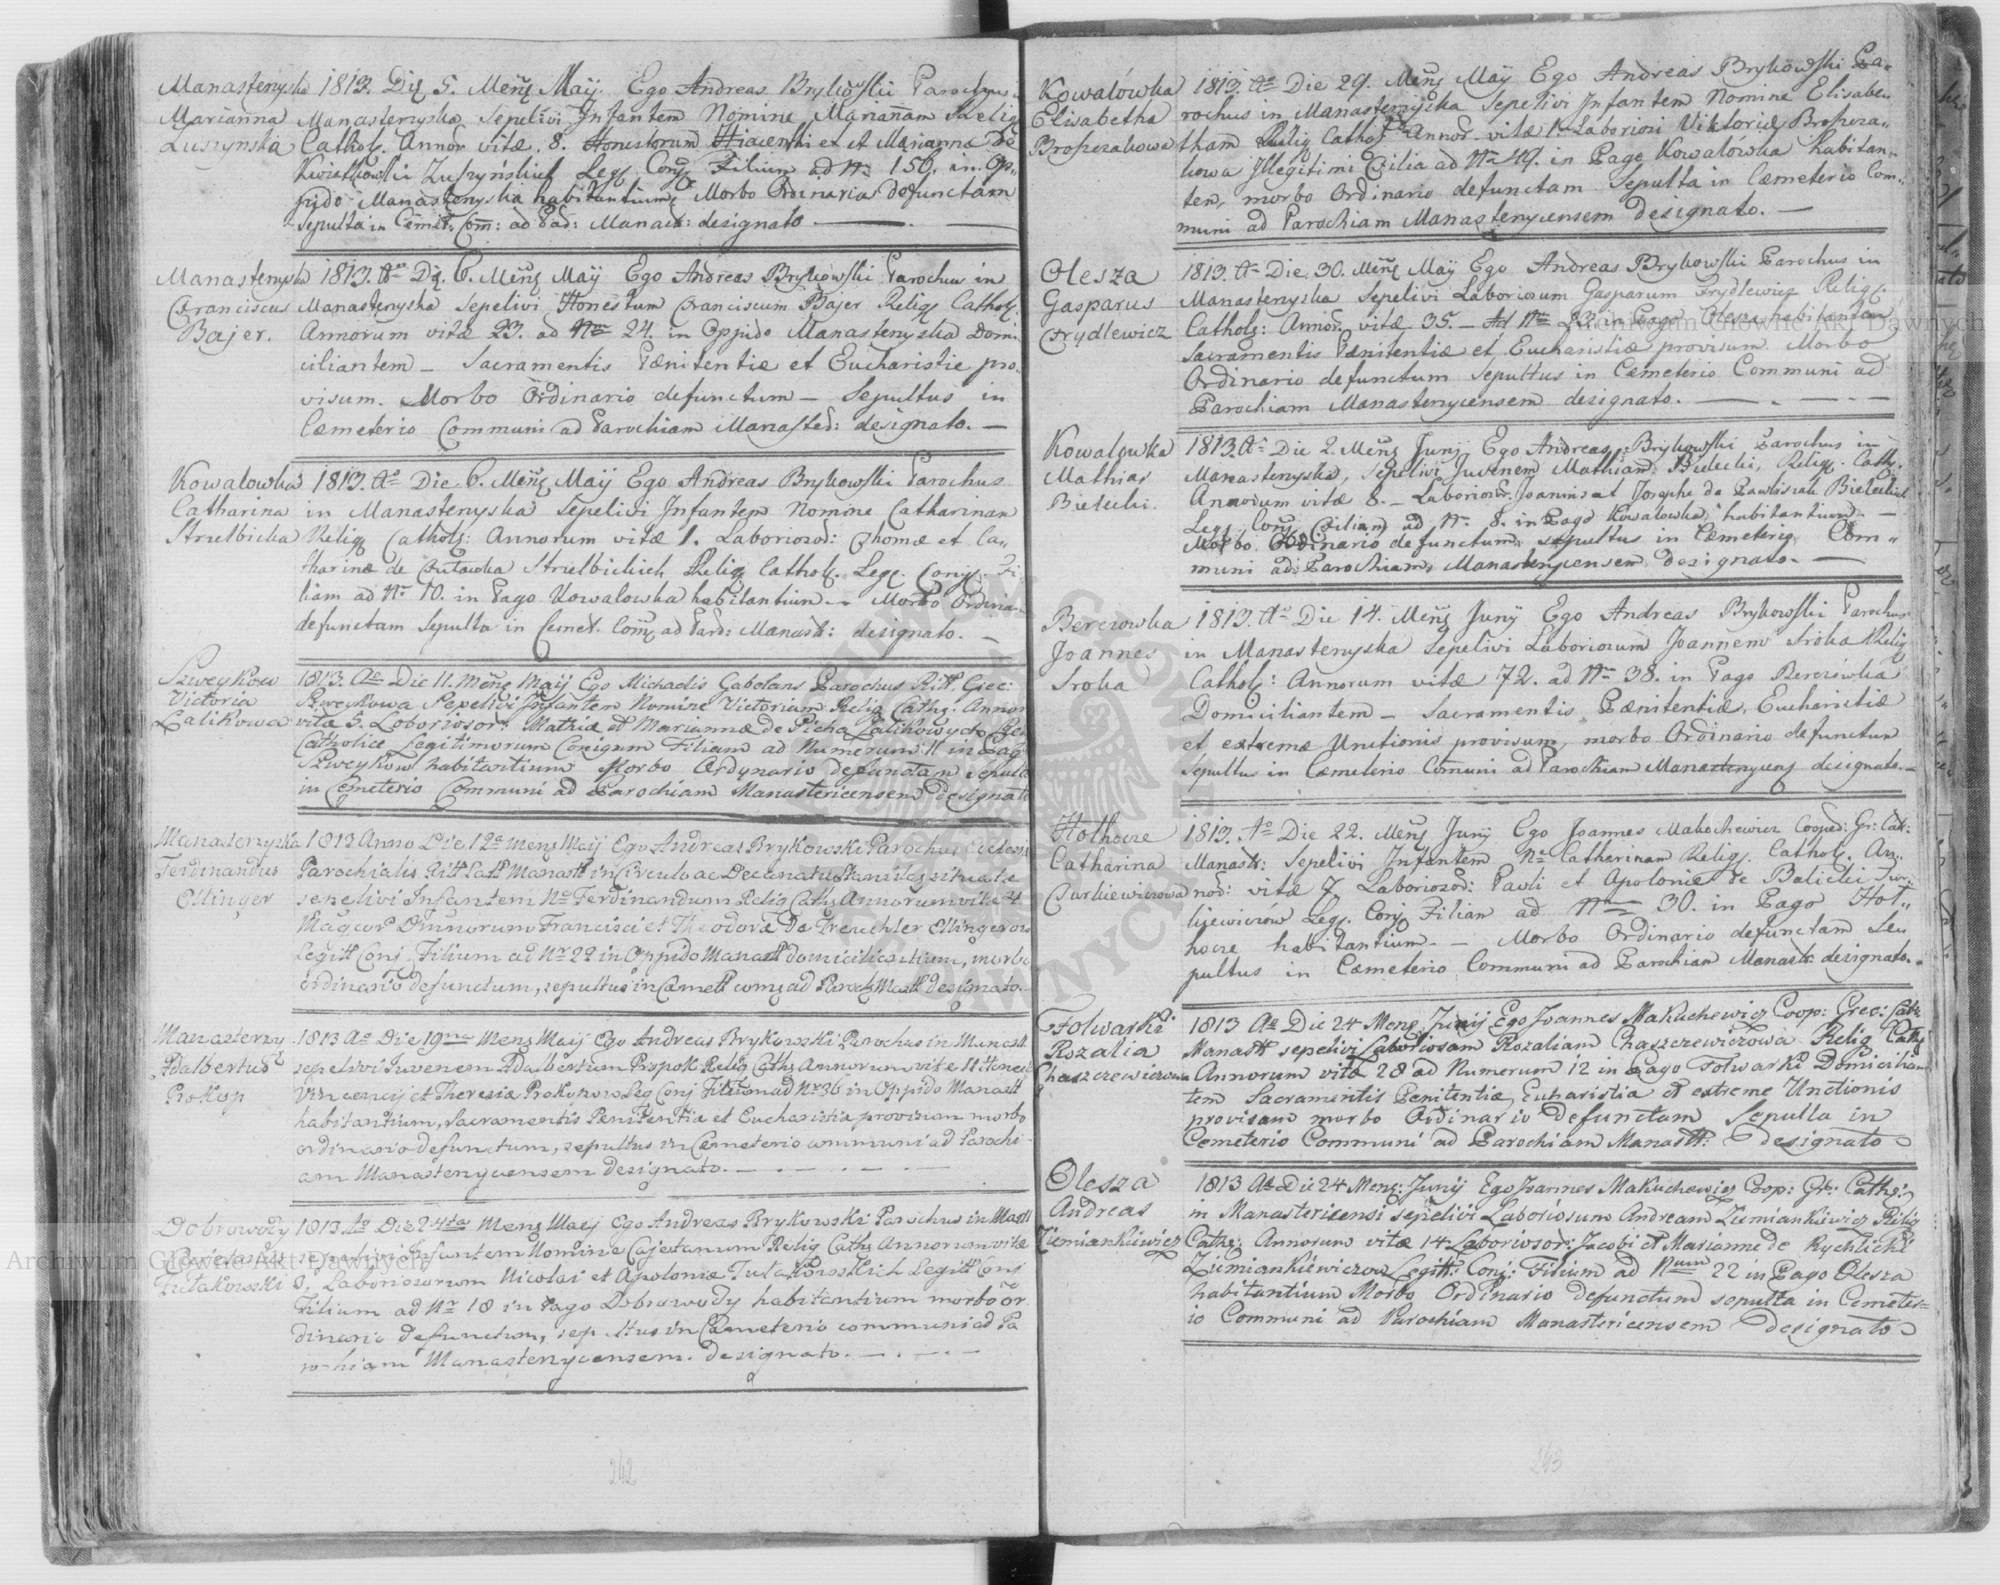 Manasterzyska
Marianna
Luszynska
1813. Die 5. Menſ Maÿ. Ego Andreas Brykowſki Parochus
Manasterzyska, Sepelivi Infantem Nomine Mariañam Relig
Cathol. Annor vitæ. 8. Honestorum Hiacenthi et Marianna De
Leg. Conj. Filium ad Nr. 156. in Op„
pido Manasterzyska habitantium, Morbo Ordinaria defunctam
Sepulta in Cemet. Com: ad Par: Manast: designato
Manasterzyska
Franciscus
Bajer.
1813. Ao Die 6. Menſ Maÿ Ego Andreas Brykowſki Parochus in
Manasterzyska Sepelivi Honestum Franciscum Bajer Relig Cathol.
Annorum vitæ 23. ad Nro 24. in Oppido Manasterzyska Domi
ciliantem — Sacramentis Pænitentiæ et Eucharistie pro„
visum. Morbo Ordinario defunctum — Sepultus in
Cæmeterio Communi ad Parochiam Manasted: designato. —
Kowalowka
Catharina
Strielbicka
1813. Ao Die 6. Menſ Maÿ Ego Andreas Brykowſki Parochus
in Manasterzyska Sepelivi Infantem Nomine Catharinam
Relig Cathol: Annorum vitæ 1. Laboriosor: Thomæ et Ca„
tharinæ de Strielbickich Relig Cathol. Leg. Conj. Fi
liam ad Nr. 10. in Pago Kowalowka habitantium. — Morbo Ordina
defunctam Sepulta in Cemet. Com ad Par: Manast: designato. —
Szweykow
Victoria
Lalikowa
1813. Ao Die 11. Menſ Maij Ego Michaelis Gabelans Parochus Ritt. Grec:
Szweykowa Sepelivi Infantem Nomine Victoriam Relig Cath: Annor
vitæ 5. Laboriosor: Mathiæ et Mariannæ de Picha Lalikowych Rel
Catholice Legitimorum Conjgum Filiam ad Numerum 11 in Pag
Szweykow habitantium Morbo Ordynario defunctam sepulta
in Cemeterio Communi ad Parochiam Manastericensem designato
Manasterzyska
Ferdinandus
Ellinger
1813 Anno Die 12a Menſ Maij Ego Andreas Brykowski Parochus Ecclesiæ
Parochialis Ritt Latt Manast in Circulo ac Decanatu situatæ
sepelivi Infantem No Ferdinandum Relig Cath Annorum vitæ 4
Francisci et Theodoræ De Treuchler Ellingerow
Legitt Conj. Filium ad Nr 22 in Oppido Manast domiciliantium, morbo
ordinario defunctum, sepultus in Cæmett com ad Paroch Mastt designato.
Manasterzy
Adalbertus
Prokop
1813 Ao Die 19na Menſ Maij Ego Andreas Brykowski Parochus in Manast
sepelivi Iuvenem Adalbertum Propok Relig Cath Annorum vitæ 11 Honest
Vincencij et Theresiæ Prokopow Leg Conj Filium ad Nr 36 in Oppido Manast
habitantium, Sacramentis Penitentiæ et Eucharistia provisum morbo
ordinario defunctum, sepultus in Cemeterio communi ad Parochi
am Manasterzycensem designato. —
Dobrowody
Cajetanus
Tutakowski
1813. Ao Die 24ta Menſ Maij Ego Andreas Brykowski Parochus in Mast
sepelivi Infantem Nomine Cajetanum Relig Cath Annorum vitæ
3, Laboriosorum Nicolai et Apoloniæ Tutakowskich Legitt Conj
Filium ad Nr 18 in Pago Dobrowody habitantium morbo or
dinario defunctum, sepultus in Cæmeterio communi ad Pa
rochiam Manasterzycensem. designato. —
242
Kowalówka
Elisabetha
Broszczakowa
1813. Ao Die 29. Menſ Maÿ Ego Andreas Brykowſki Pa„
rochus in Manasterzyska Sepelivi Infantem Nomine Elisabe„
tham Relig Cathol Annor. vitæ 1. Laboriosi Viktoriæ Broszcza„
kowa Illegitimi Filia ad Nro 49. in Pago Kowalowka habitan„
ten, morbo Ordinario defunctam Sepulta in Cæmeterio Com„
muni ad Parochiam Manasterzycensem designato. —
Olesza
Gasparus
Frydlewicz
1813. Ao Die 30. Menſ Maÿ Ego Andreas Brykowſki Parochus in
Manasterzyska Sepelivi Laboriosum Gasparum Frydlewicz Relig.
Cathol: Annor. vitæ 35. — Ad Nro 23. in Pago Olesza habitantem
Sacramentis Pænitentiæ et Eucharistiæ provisum Morbo
Ordinario defunctum Sepultus in Cæmeterio Communi ad
Parochiam Manasterzycensem designato. —
Kowalowka
Mathias
Bielecki
1813. Ao Die 2. Menſ Junÿ Ego Andreas Brykowſki Parochus in
Manasterzyska, Sepelivi Juvenem Mathiam Bielecki, Relig. Cath.
Annorum vitæ 8. — Laboriosor Joannis et Josephe de Pawlisiak Bieleckich
Leg. Conj. Filiam ad Nr. 8. in Pago Kowalowka, habitantium —
Morbo Ordinario defunctum sepultus in Cæmeterio Com„
muni ad Parochiam Manasterzycensem designato. —
Berezowka
Joannes
Sroka
1813. Ao Die 14. Menſ Junÿ Ego Andreas Brykowſki Parochus
in Manasterzyska Sepelivi Laboriosum Joannem Sroka Relig
Cathol: Annorum vitæ 72. ad Nro 38. in Pago Berezówka
Domiciliantem — Sacramentis Pænitentiæ, Eucharistiæ
et extremæ Unctionis provisum, morbo Ordinario defunctum
Sepultus in Cæmeterio Comuni ad Parochiam Manasterzycens designato. —
Holhocze
Catharina
Turkiewiczowa
1813. Ao Die 22. Menſ Junÿ Ego Joannes Makochewicz Cooped: Gr: Cat:
Manast: Sepelivi Infantem Ne Catharinam Relig. Cathol. An„
nor: vitæ 7. Laboriosor: Pavli et Apoloniæ de Balicki Tur„
kiewiczów Leg. Conj Filiam ad Nro 30. in Pago Hol„
hocze habitantium. — Morbo Ordinario defunctam Se„
pultus in Cæmeterio Communi ad Parochiam Manast: designato. —
Folwarki
Rozalia
Chaszczewiczowa
1813 Ao Die 24 Menſ Junij Ego Joannes Makuchewicz Coop: Grec: Cath:
Manastt sepelivi Laboriosam Rozaliam Chaszczewiczowa Relig Cath
Annorum vitæ 28 ad Numerum 12 in Pago Folwarki Domicilian
tem Sacramentis Penitentiæ, Eucharistia et extreme Unctionis
provisam morbo Ordinario defunctam Sepulta in
Cemeterio Communi ad Parochiam Manastt: designato
Olesza
Andreas
Ziemiankiewicz
1813 Ao Die 24 Menſ: Junij Ego Joannes Makuchewicz Coop: Gr: Cath:
in Manastericensi sepelivi Laboriosum Andream Ziemiankiewicz Relig
Cath: Annorum vitæ 14 Laboriosor: Jacobi et Marianne de Rychlicki
Ziemiankiewiczow Legitt: Conj: Filium ad Num 22 in Pago Olesza
habitantium Morbo Ordinario defunctum sepulta in Cemete=
rio Communi ad Parochiam Manastericensem designato
243
Archiwum Główne Akt Dawnych
Archiwum Główne Akt Dawnych